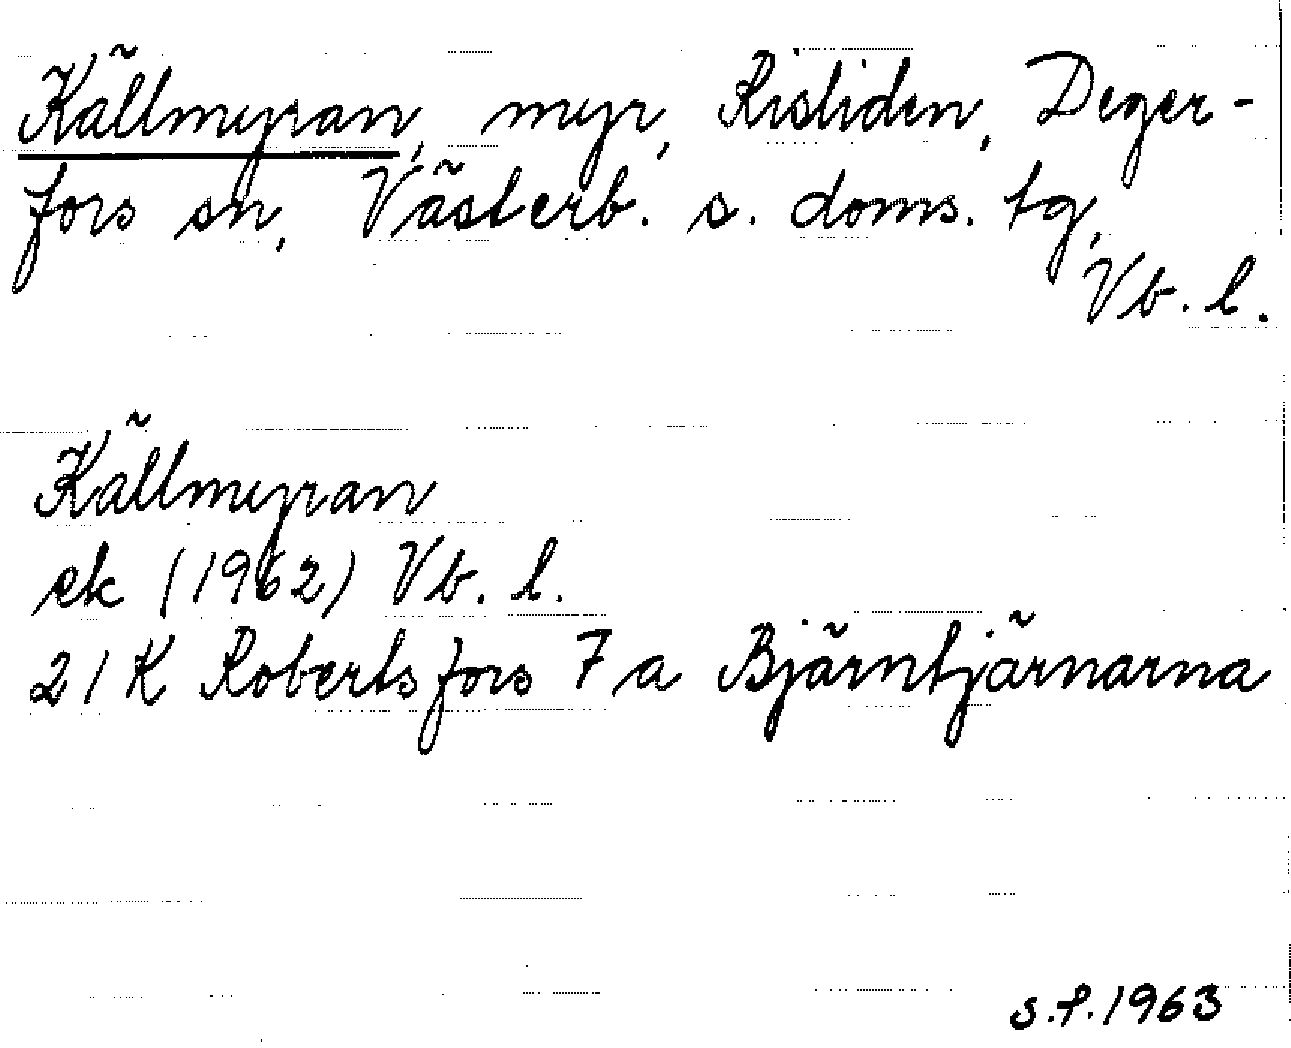 Källmyran, myr, Risliden, Deger-
fors sn, Västerb. s. doms. tg,
Vb. l.
Källmyran
ek (1962) Vb. l.
21K Robertsfors 7a Björntjärnarna
s.f. 1963